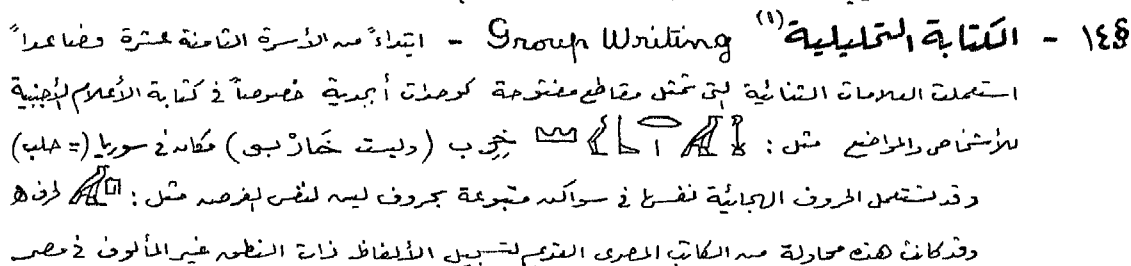 §١٤ - الكتابة التحليلية (١) Group Writing - ابتداءً من الأسرة الثامنة عشرة فصاعداً
استعملت العلامات الثنائية التى تمثل مقاطع مفتوحة كوحدات أبجدية خصوصاً فى كتابة الأعلام الأجنبية
للأشخاص والمواضع مثل : خِرِب (وليست خَارْبى) مكان فى سوريا (= حلب)
وقد تستعمل الحروف الهجائية نفسها فى سواكن متبوعة بحروف لين لنفس الغرض مثل : لحرف ه
وقد كانت هذه محاولة من الكاتب المصرى القديم لتسجيل الألفاظ ذات النطق غير المألوف فى مصر